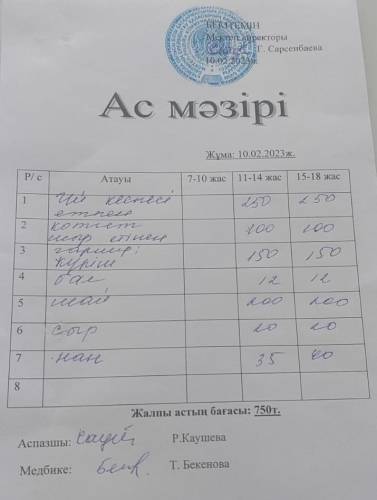 БЕКІТЕМІН
Мектеп директоры
Г. Сарсенбаева
10.02.2023ж
Ас мәзірі
Жұма: 10.02.2023ж.
Р/ с Атауы 7-10 жас 11-14 жас 15-18 жас
1 Үй кеспесі етпен 250 250
2 котлет сиыр етінен 100 100
3 гарнир: күріш 150 150
4 бал 12 12
5 шай 200 200
6 сыр 20 20
7 нан 35 40
8
Жалпы астың бағасы: 750т.
Аспазшы: Р.Каушева
Медбике: Т. Бекенова